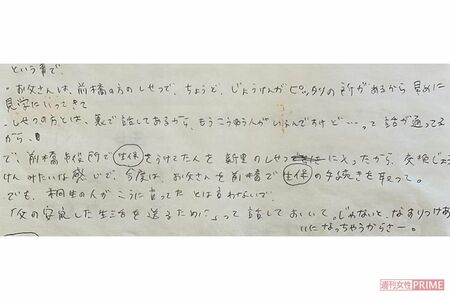 という事で、
・お父さんは、前橋の方のしせつで、ちょうど、じょうけんがピッタリの所があるから 早めに
見学にいってきて
・しせつの方とは、裏で話してあるから、もうこうゆう人がいるんですけど…って話が通ってる
から、
で、前橋市役所で生保をうけてた人を 新里のしせつ に入ったから、交換じょう
けん みたいな感じで、今度は、お父さんを前橋で生保の手続きを取って。
でも、桐生の人がこうに言ってた とは言わないで、
「父の安定した生活を送るために」って話しておいて。じゃないと、なすりつけあ
いになっちゃうからさー。
週刊女性PRIME